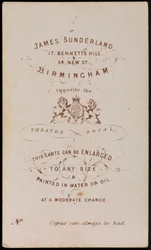 JAMES SUNDERLAND,
17, BENNETTS HILL
&
54, NEW ST
BIRMINGHAM
opposite the
THEATRE ROYAL,
THIS CARTE CAN BE ENLARGED
TO ANY SIZE
&
PAINTED IN WATER OR OIL
AT A MODERATE CHARGE.
No
Copies can always be had.